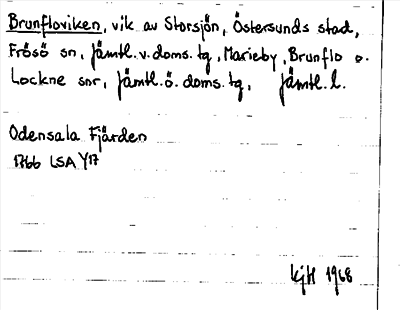 Brunfloviken, vik av Storsjön, Östersunds stad,
Frösö sn, Jämtl.v.doms.tg, Marieby, Brunflo o.
Lockne snr, Jämtl.ö.doms.tg, Jämtl.l.
Odensala Fjärden
1766 LSA Y17
kjH 1968